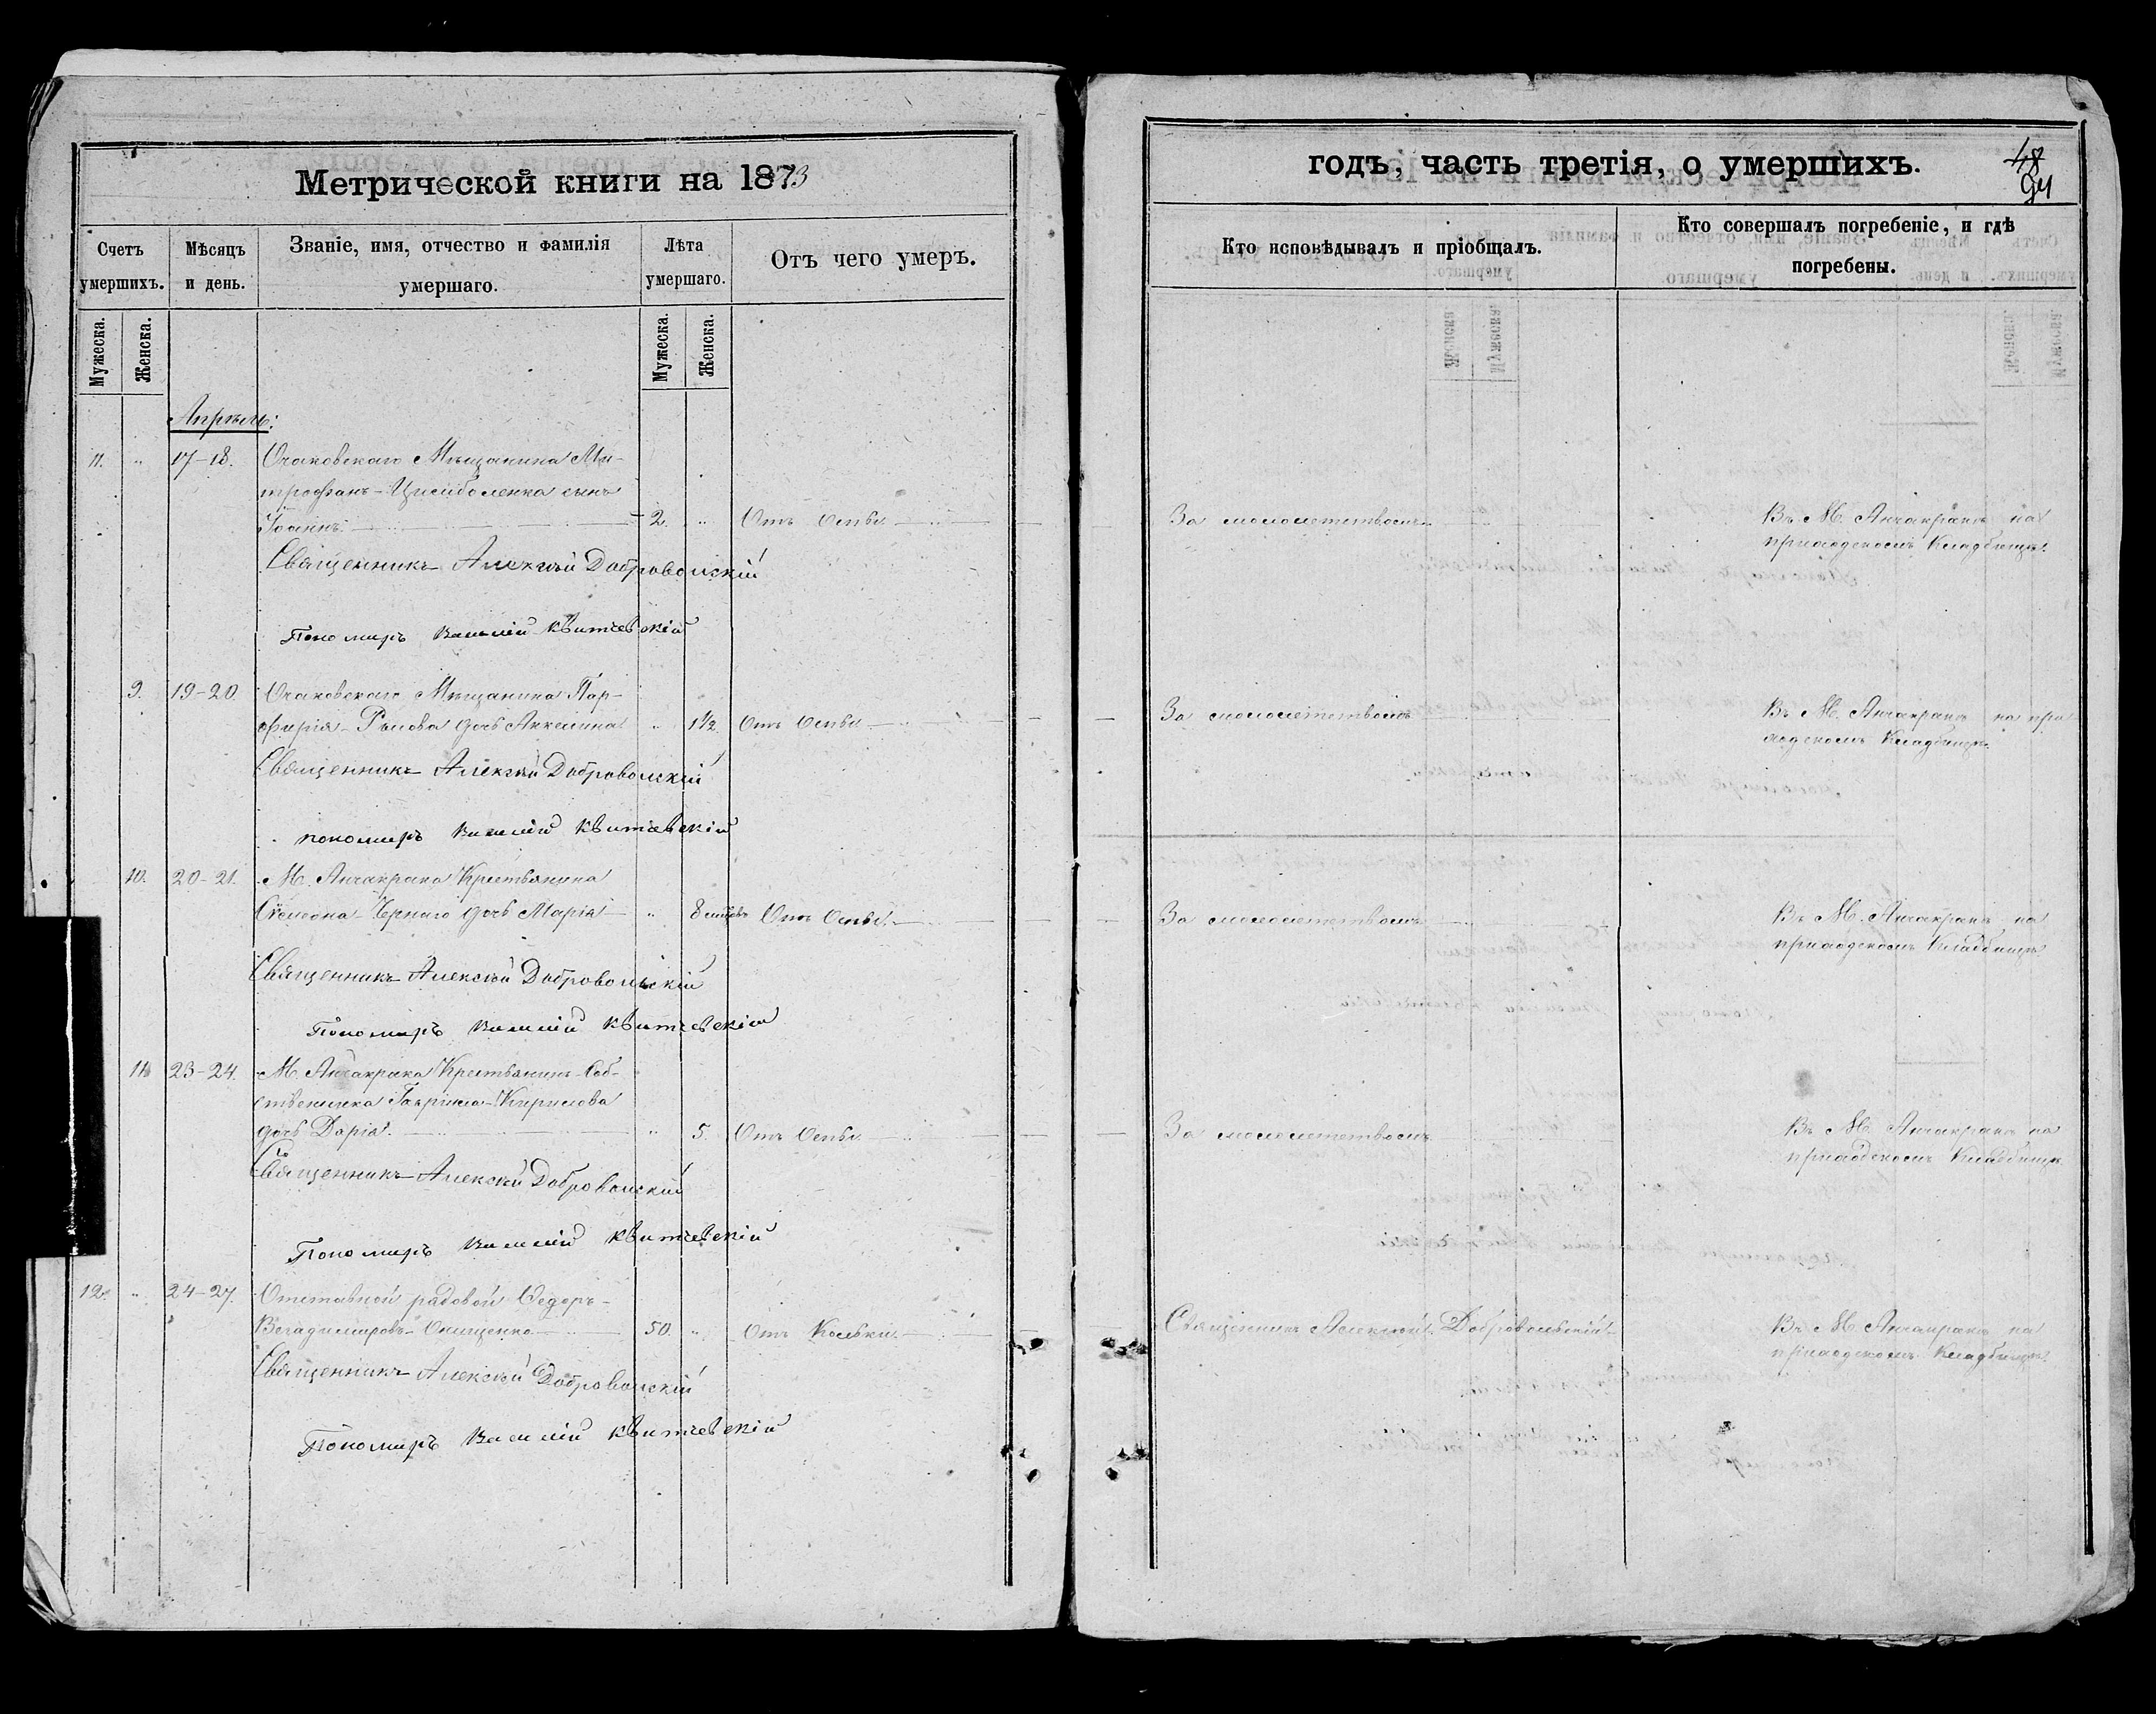 Метрической книги на 1873
Счетъ умершихъ.
Мѣсяцъ и день.
Званіе, имя, отчество и фамилія умершаго.
Лѣта умершаго.
Отъ чего умеръ.
Мужеска.
Женска.
Мужеска.
Женска.
Апрѣль:
11. " 17-18. Очаковскаго Мѣщанина Ми-
трофанъ- сынъ
Іоаннъ. 2. " Отъ Оспы.
Священникъ Алексѣй Добровольскій
Пономарь Василій Квитчевскій
9. 19-20. Очаковскаго Мѣщанина Пар-
фирія дочь Аккелина " 1½. Отъ Оспы.
Священникъ Алексѣй Добровольскій
пономарь Василій Квитчевскій
10. 20-21. М. Анчакрака Крестьянина
Чернаго дочь Марія " 8 Отъ Оспы.
Священникъ Алексѣй Добровольскій
Пономарь Василій Квитчевскій
11 23-24. М. Анчакрака Крестьянинъ-Соб-
ственника Гаврила-Кирилова
дочь Дарія. " 5. Отъ Оспы.
Священникъ Алексѣй Добровольскій
Пономарь Василій Квитчевскій
12. " 24-27. Отставной рядовой Ѳедоръ-
Онищенко 50. " Отъ Кольки.
Священникъ Алексѣй Добровольскій
Пономарь Василій Квитчевскій
годъ, часть третія, о умершихъ.
48
94
Кто исповѣдывалъ и пріобщалъ.
Кто совершалъ погребеніе, и гдѣ
погребены.
За малолетствомъ
Въ М. Анчакракѣ на
приходскомъ Кладбищѣ.
За малолетствомъ
Въ М. Анчакракѣ на при-
ходскомъ Кладбищѣ.
За малолетствомъ
Въ М. Анчакракѣ на
приходскомъ Кладбищѣ
За малолетствомъ
Въ М. Анчакракѣ на
приходскомъ Кладбищѣ
Священникъ Алексѣй Добровольскій
Въ М. Анчакракѣ на
приходскомъ Кладбищѣ.